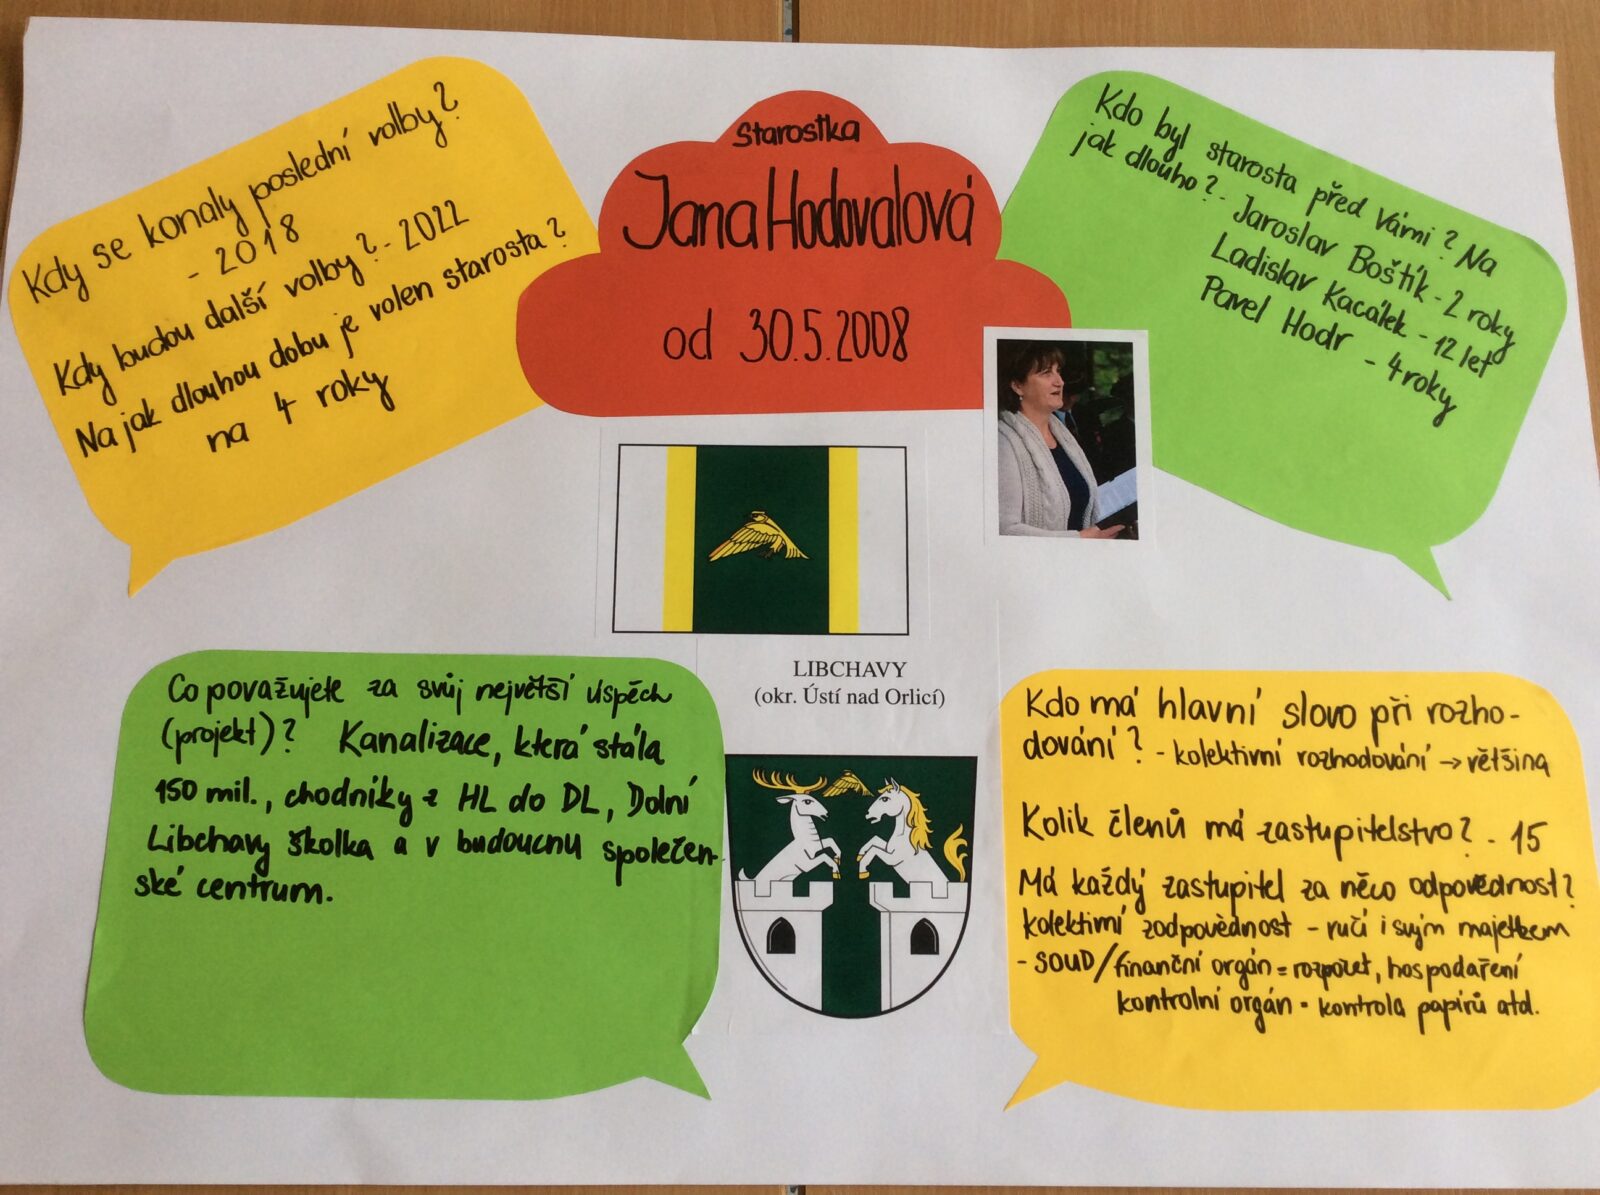 Starostka
Jana Hodovalová
od 30.5.2008
Kdy se konaly poslední volby?
- 2018
Kdy budou další volby? - 2022
Na jak dlouhou dobu je volen starosta?
na 4 roky
Kdo byl starosta před Vámi? Na
jak dlouho? - Jaroslav Boštík - 2 roky
Ladislav Kacálek - 12 let
Pavel Hodr - 4 roky
LIBCHAVY
(okr. Ústí nad Orlicí)
Co považujete za svůj největší úspěch
(projekt)? Kanalizace, která stála
150 mil., chodníky z HL do DL, Dolní
Libchavy školka a v budoucnu společen-
ské centrum.
Kdo má hlavní slovo při rozho-
dování? - kolektivní rozhodování → většina
Kolik členů má zastupitelstvo? - 15
Má každý zastupitel za něco odpovědnost?
kolektivní zodpovědnost - ručí i svým majetkem
- SOUD/finanční orgán = rozpočet, hospodaření
kontrolní orgán = kontrola papírů atd.